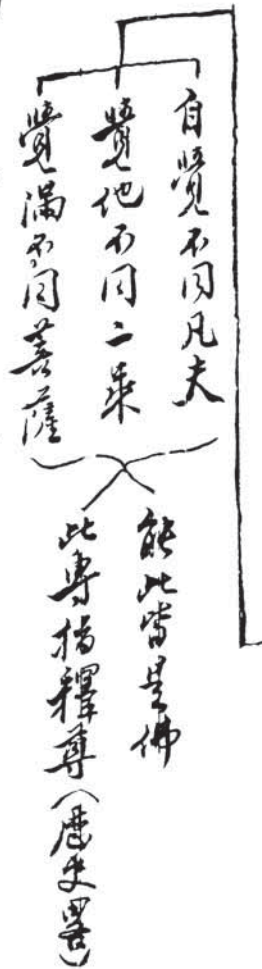 自覺不同凡夫
覺他不同二乘
覺滿不同菩薩
能此皆是佛
此專指釋尊（歷史畧）